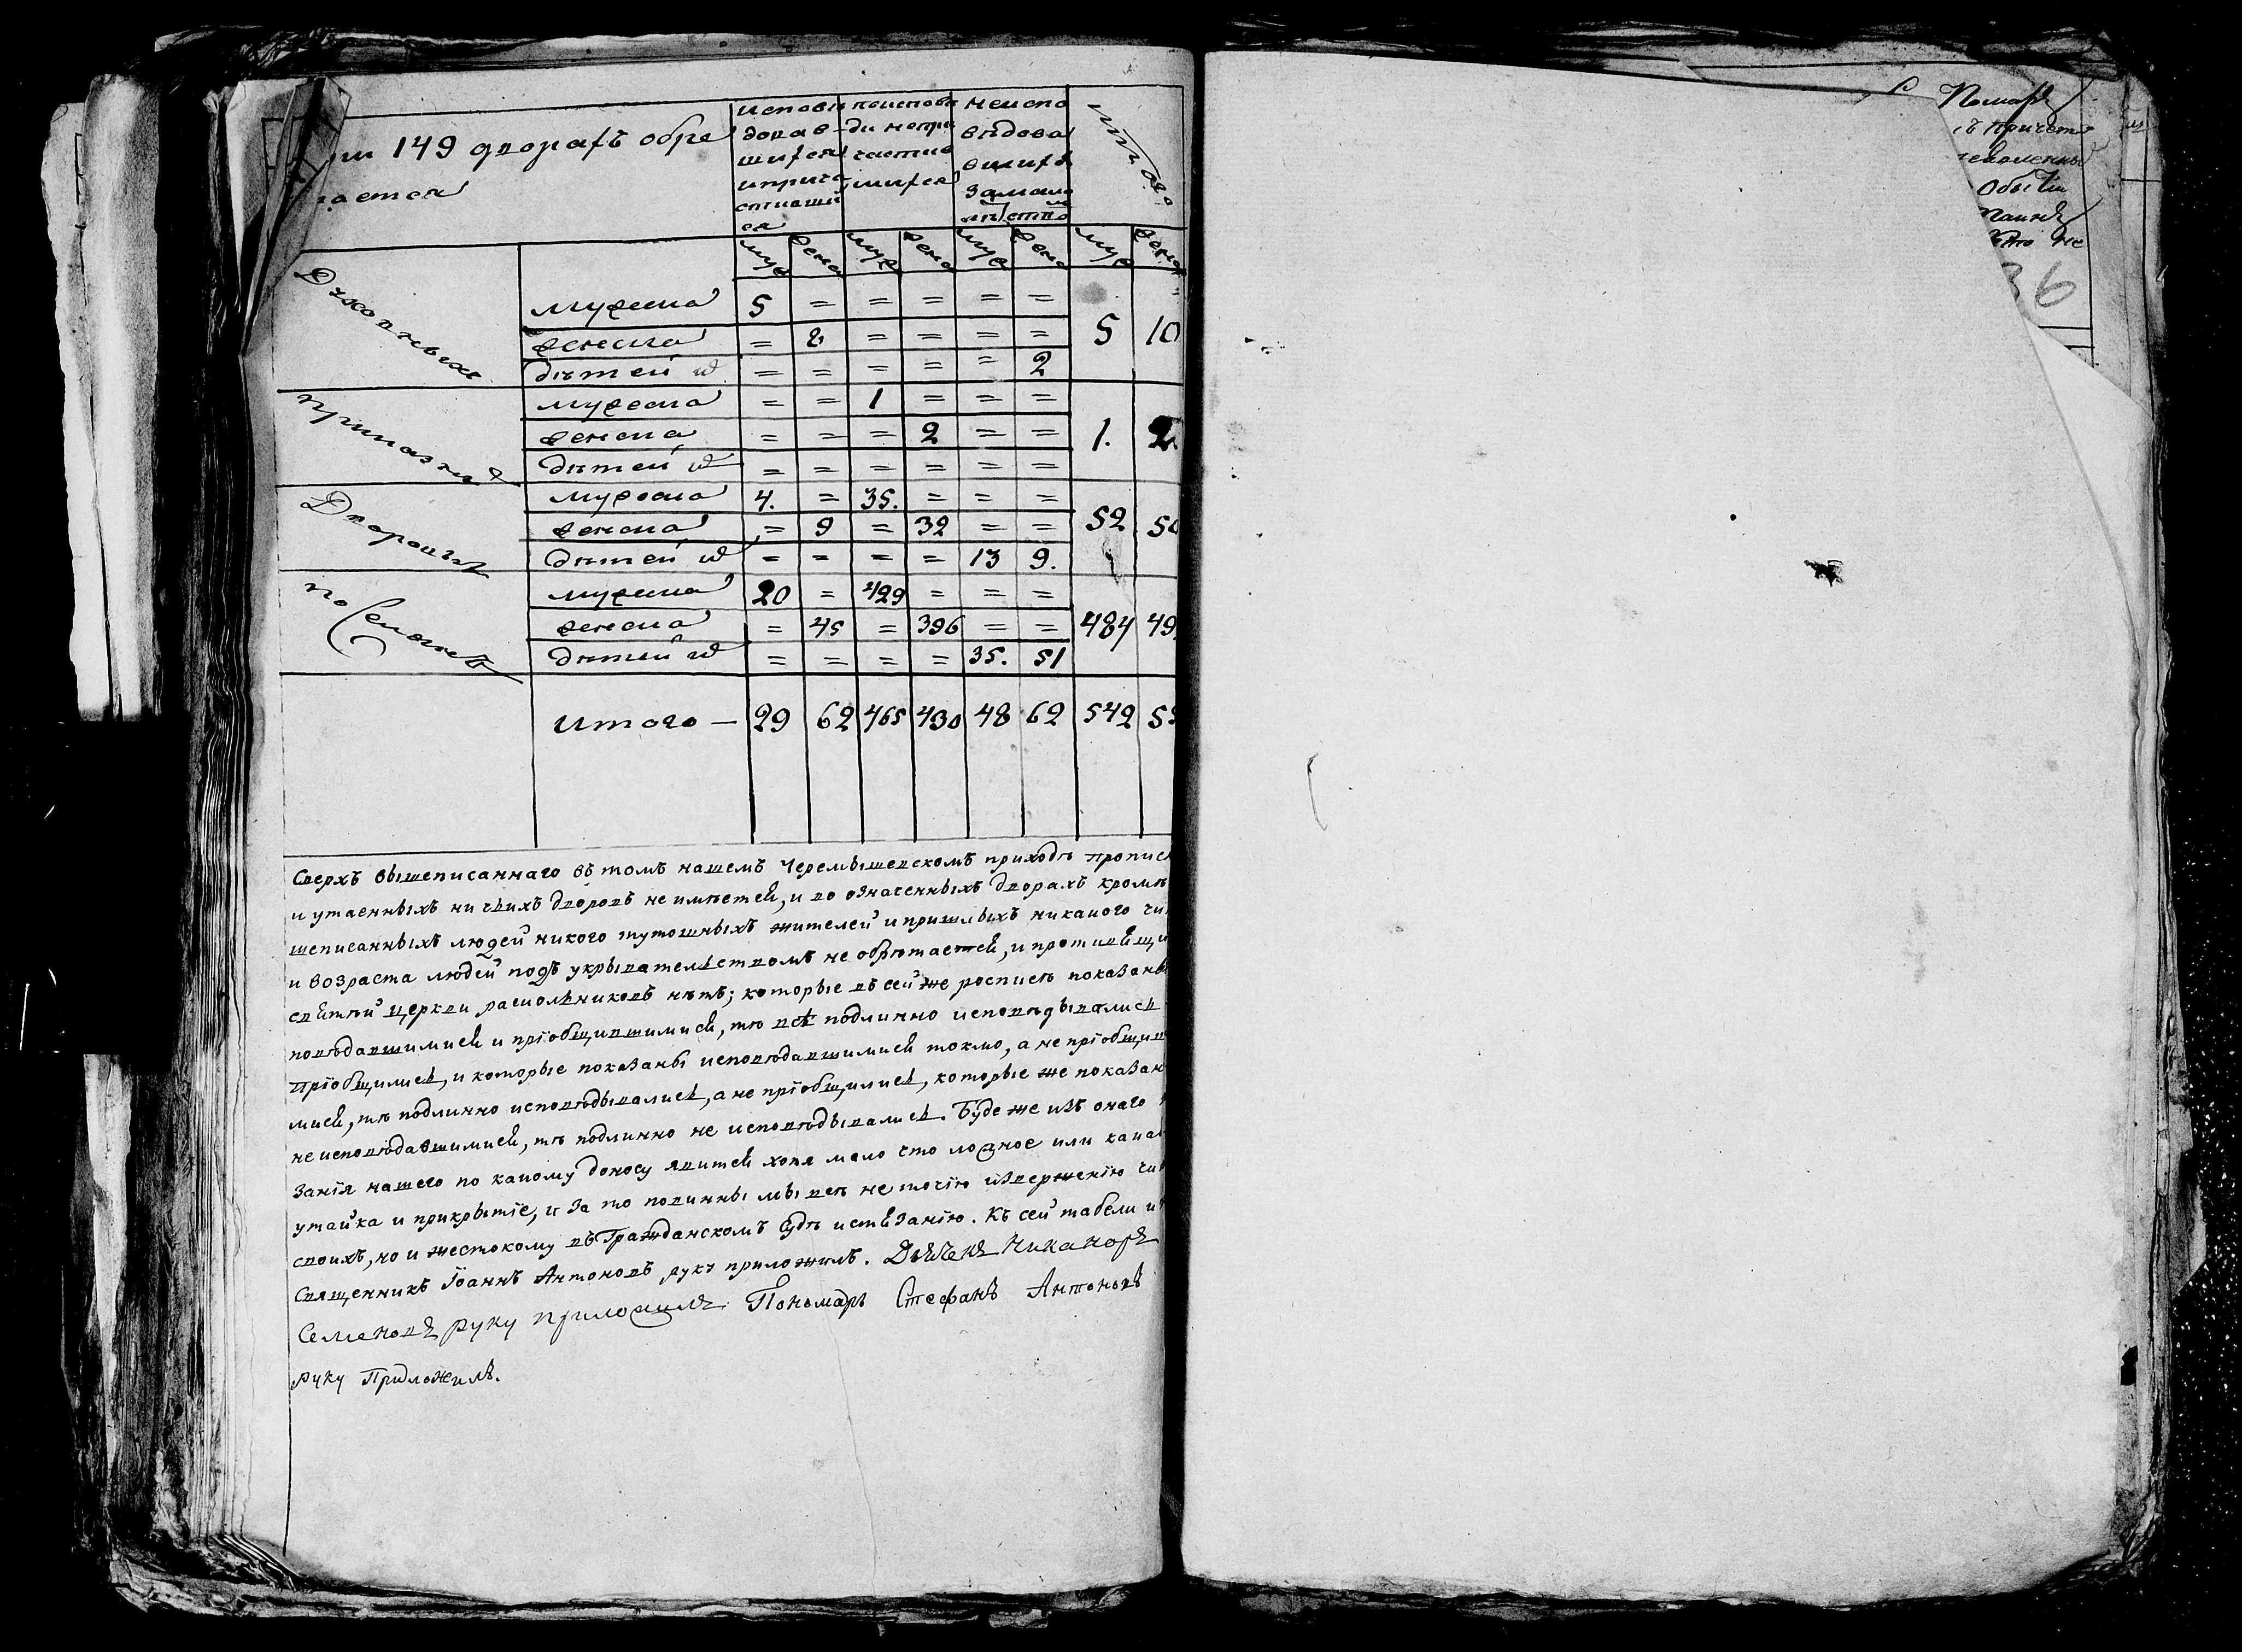 149 дворахъ обре
тается
исповѣ
давшихся
и прича
стивши
ся
по испове
ди непри
частив
шихся
неиспо
вѣдова
вшихъ
за мало
лѣтство
итого
муж жена муж жена муж жена муж жена
Духовныхъ
мужеска 5 = = = = = 5 10
женска = 8 = = = =
дѣтей ихъ = = = = = 2
приказныхъ
мужеска = = 1 = = = 1. 2.
женска = = = 2 = =
дѣтей ихъ = = = = = =
Дворовыхъ
мужеска 4. = 35. = = = 52 50
женска = 9 = 32 = =
дѣтей ихъ = = = = 13 9.
поселянъ
мужеска 20 = 429 = = = 484 49
женска = 45 = 396 = =
дѣтей ихъ = = = = 35. 51
итого — 29 62 465 430 48 62 542 55
Сверхъ вышеписаннаго въ томъ нашемъ Черемышевскомъ приходѣ пропис
и утаенныхъ ничьихъ дворовъ не имѣется, и во означенныхъ дворахъ кромѣ
шеписанныхъ людей никого тутошныхъ жителей и пришлыхъ никакого чи
и возраста людей подъ укрывательствомъ не обрѣтается, и противящи
святѣй церкви раскольниковъ нѣтъ; которые въ сей же росписѣ показаны
повѣдавшимися и пріобщившимися, тѣ всѣ подлинно исповѣдывались
пріобщились, и которые показаны исповѣдавшимися токмо, а не пріобщив
мися, тѣ подлинно исповѣдывались, а не пріобщились, которые же показан
не исповѣдавшимися, тѣ подлинно не исповѣдывались. Буде же изъ онаго
занія нашего по какому доносу явится хотя мало что ложное или какая
утайка и прикрытіе, и за то повинны мы всѣ не точію изверженію чи
своихъ, но и жестокому въ Гражданскомъ судѣ истязанію. Къ сей табели
Священникъ Іоаннъ Антоновъ руку приложилъ. Дьячекъ Никаноръ
Семеновъ руку приложилъ. Пономарь Стефанъ Антоновъ
руку Приложилъ.
Помаръ
причетъ
36